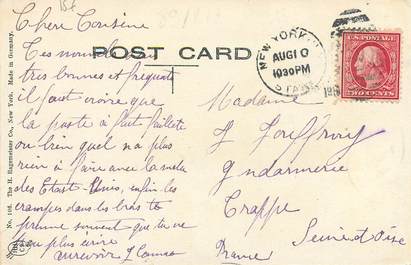 Chère Cousine
Tes nouvelles
très bonnes et fréquentes
il faut croire que
la poste à fait faillite
ou bien quel n'a plus
rien à faire avec la
des Etats-Unis, enfin les
crampes dans les bras te
prenne souvent que tu ne
plus écrire
aurevoir
POST CARD
NEW YORK, N.Y.
AUG 10
1030PM
STA
191
U.S. POSTAGE
2 CENTS 2
Madame
Gendarmerie
Trappe
Seine et Oise
France
No. 108. The H. Hagemeister Co., New York. Made in Germany.